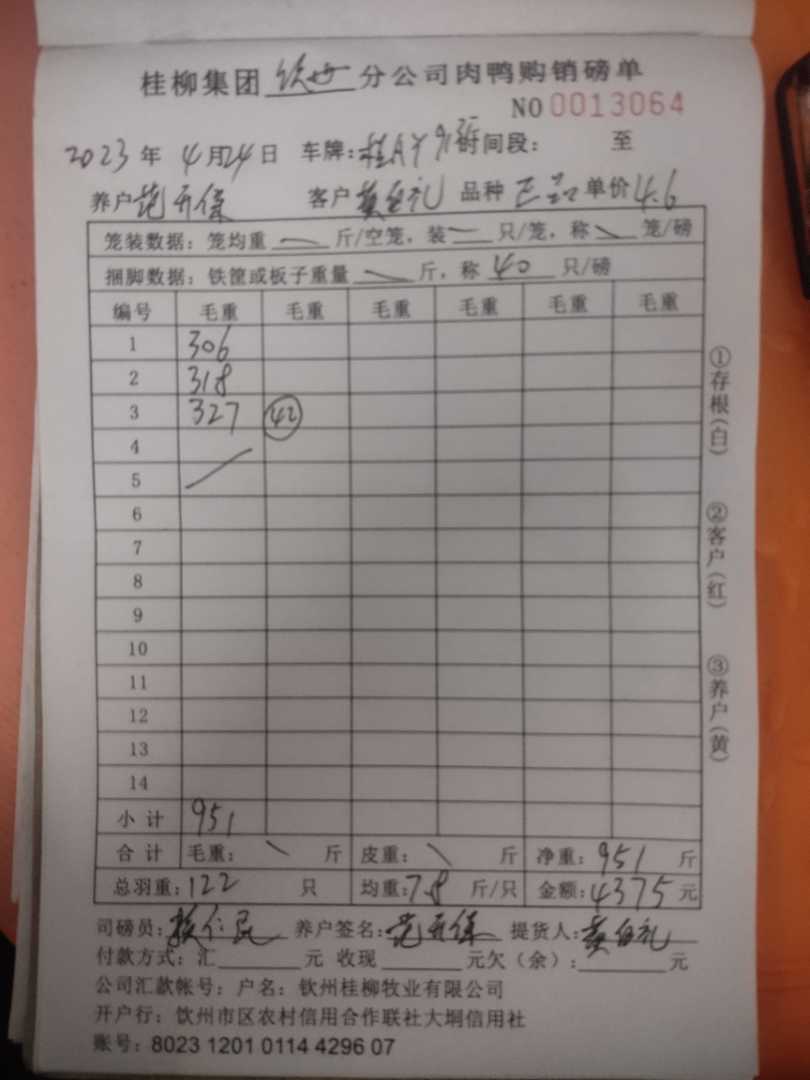 桂柳集团 分公司肉鸭购销磅单
NO 0013064
2023 年 4 月 24 日 车牌:桂A 时间段: 至
养户 客户 品种 正品 单价 4.6
笼装数据:笼均重 斤/空笼,装 只/笼,称 笼/磅
捆脚数据:铁筐或板子重量 斤,称 40 只/磅
编号 毛重 毛重 毛重 毛重 毛重 毛重
1 306
2 318
3 327 42
4
5
6
7
8
9
10
11
12
13
14
小计 951
合计 毛重: 斤 皮重: 斤 净重: 951 斤
总羽重: 122 只 均重: 7.8 斤/只 金额: 4375 元
司磅员: 养户签名: 提货人:
付款方式:汇 元 收现 元欠(余): 元
公司汇款帐号:户名:钦州桂柳牧业有限公司
开户行:钦州市区农村信用合作联社大垌信用社
账号:8023 1201 0114 4296 07
①存根(白)
②客户(红)
③养户(黄)